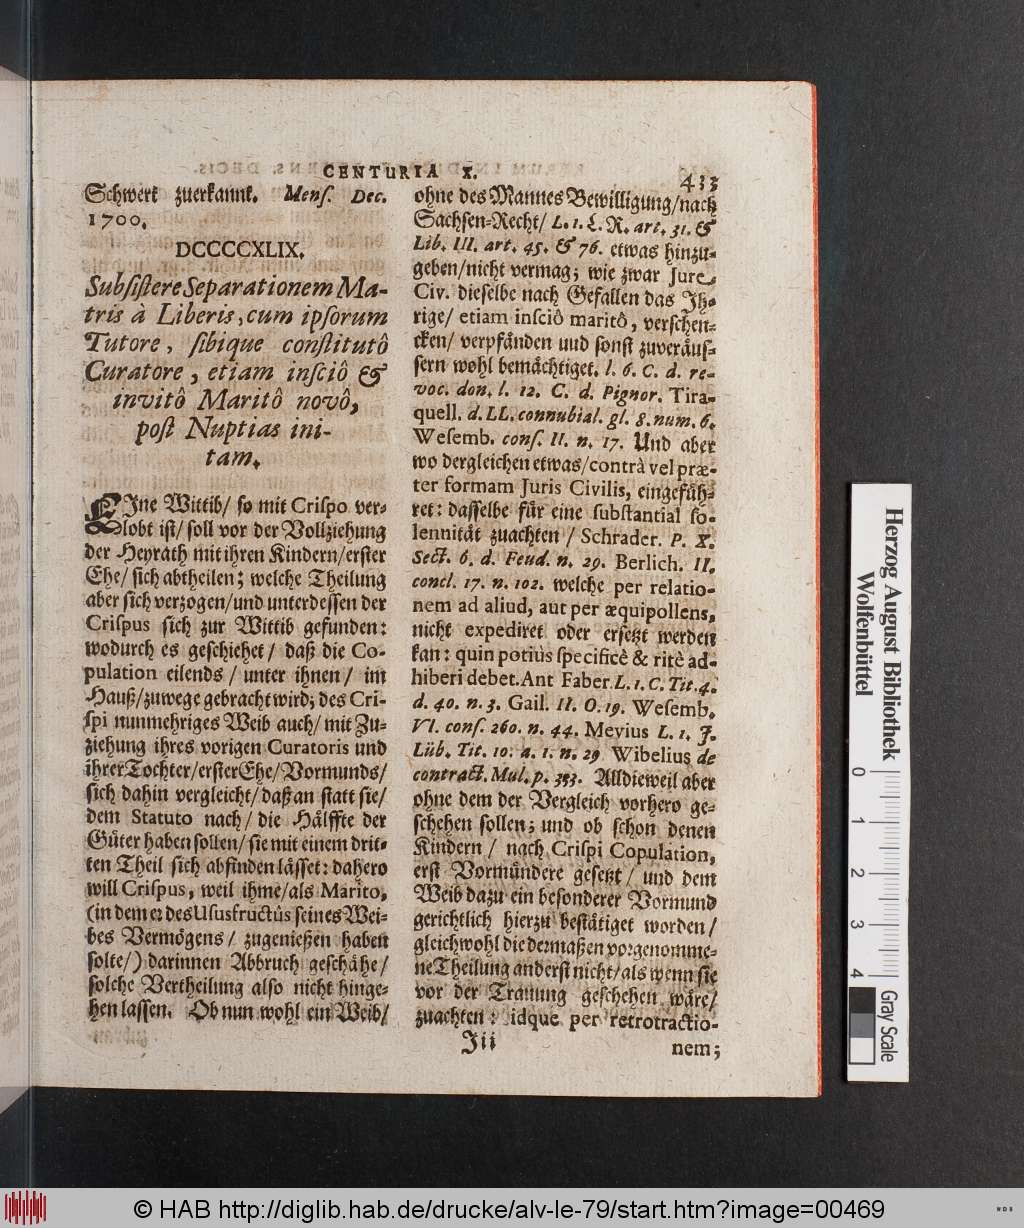 CENTURIA X.
433
Schwert zuerkannt. Menſ. Dec.
1700.
DCCCCXLIX.
Subſiſtere Separationem Ma-
tris à Liberis, cum ipſorum
Tutore, ſibique conſtitutô
Curatore, etiam inſciô &
invitô Maritô novô,
poſt Nuptias ini-
tam.
EIne Wittib/ ſo mit Criſpo ver-
lobt iſt/ ſoll vor der Vollziehung
der Heyrath mit ihren Kindern/erſter
Ehe/ ſich abtheilen; welche Theilung
aber ſich verzogen/und unterdeſſen der
Criſpus ſich zur Wittib gefunden:
wodurch es geſchiehet/ daß die Co-
pulation eilends/ unter ihnen/ im
Hauß/zuwege gebracht wird; des Cri-
ſpi nunmehriges Weib auch/ mit Zu-
ziehung ihres vorigen Curatoris und
ihrer Tochter/erſter Ehe/Vormunds/
ſich dahin vergleicht/ daß an ſtatt ſie/
dem Statuto nach/ die Hälffte der
Güter haben ſollen/ ſie mit einem drit-
ten Theil ſich abfinden läſſet: dahero
will Criſpus, weil ihme/als Marito,
(in dem er des Uſusfructûs ſeines Wei-
bes Vermögens/ zugenießen haben
ſolte/) darinnen Abbruch geſchähe/
ſolche Vertheilung alſo nicht hinge-
hen laſſen. Ob nun wohl ein Weib/
ohne des Mannes Bewilligung/nach
Sachſen-Recht/ L. 1. L. R. art. 31. &
Lib. III. art. 45. & 76. etwas hinzu-
geben/nicht vermag; wie zwar Jure
Civ. dieſelbe nach Gefallen das Jh-
rige/ etiam inſciô maritô, verſchen-
cken/ verpfänden uud ſonſt zuveräuſ-
ſern wohl bemächtiget. l. 6. C. d. re-
voc. don. l. 12. C. d. Pignor. Tira-
quell. d. LL. connubial. gl. 8. num. 6.
Weſemb. conſ. II. n. 17. Und aber
wo dergleichen etwas/contrà vel præ-
ter formam Juris Civilis, eingefüh-
ret: daſſelbe für eine ſubſtantial ſo-
lennität zuachten/ Schrader. P. X.
Sect. 6. d. Feud. n. 29. Berlich. II.
concl. 17. n. 102. welche per relatio-
nem ad aliud, aut per æquipollens,
nicht expediret oder erſetzt werden
kan: quin potiùs ſpecificè & ritè ad-
hiberi debet. Ant Faber. L. 1. C. Tit. 4.
d. 40. n. 3. Gail. II. O. 19. Weſemb.
VI. conſ. 260. n. 44. Mevius L. 1. J.
Lüb. Tit. 10. a. 1. n. 29 Wibelius de
contract. Mul. p. 353. Alldieweil aber
ohne dem der Vergleich vorhero ge-
ſchehen ſollen; und ob ſchon denen
Kindern/ nach Criſpi Copulation,
erſt Vormündere geſetzt/ und dem
Weib dazu ein beſonderer Vormund
gerichtlich hierzu beſtätiget worden/
gleichwohl die dermaßen vorgenomme-
ne Theilung anderſt nicht/als wenn ſie
vor der Trauung geſchehen wäre/
zuachten: idque per retrotractio-
Jii
nem;
Herzog August Bibliothek
Wolfenbüttel
0 1 2 3 4
Gray Scale
© HAB http://diglib.hab.de/drucke/alv-le-79/start.htm?image=00469